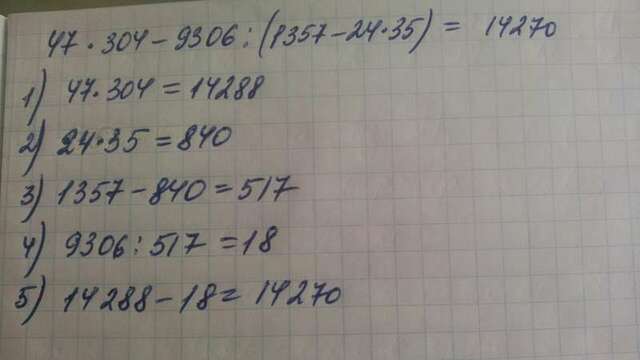 47·304-9306:(1357-24·35) = 14270
1) 47·304=14288
2) 24·35=840
3) 1357-840=517
4) 9306:517=18
5) 14288-18=14270